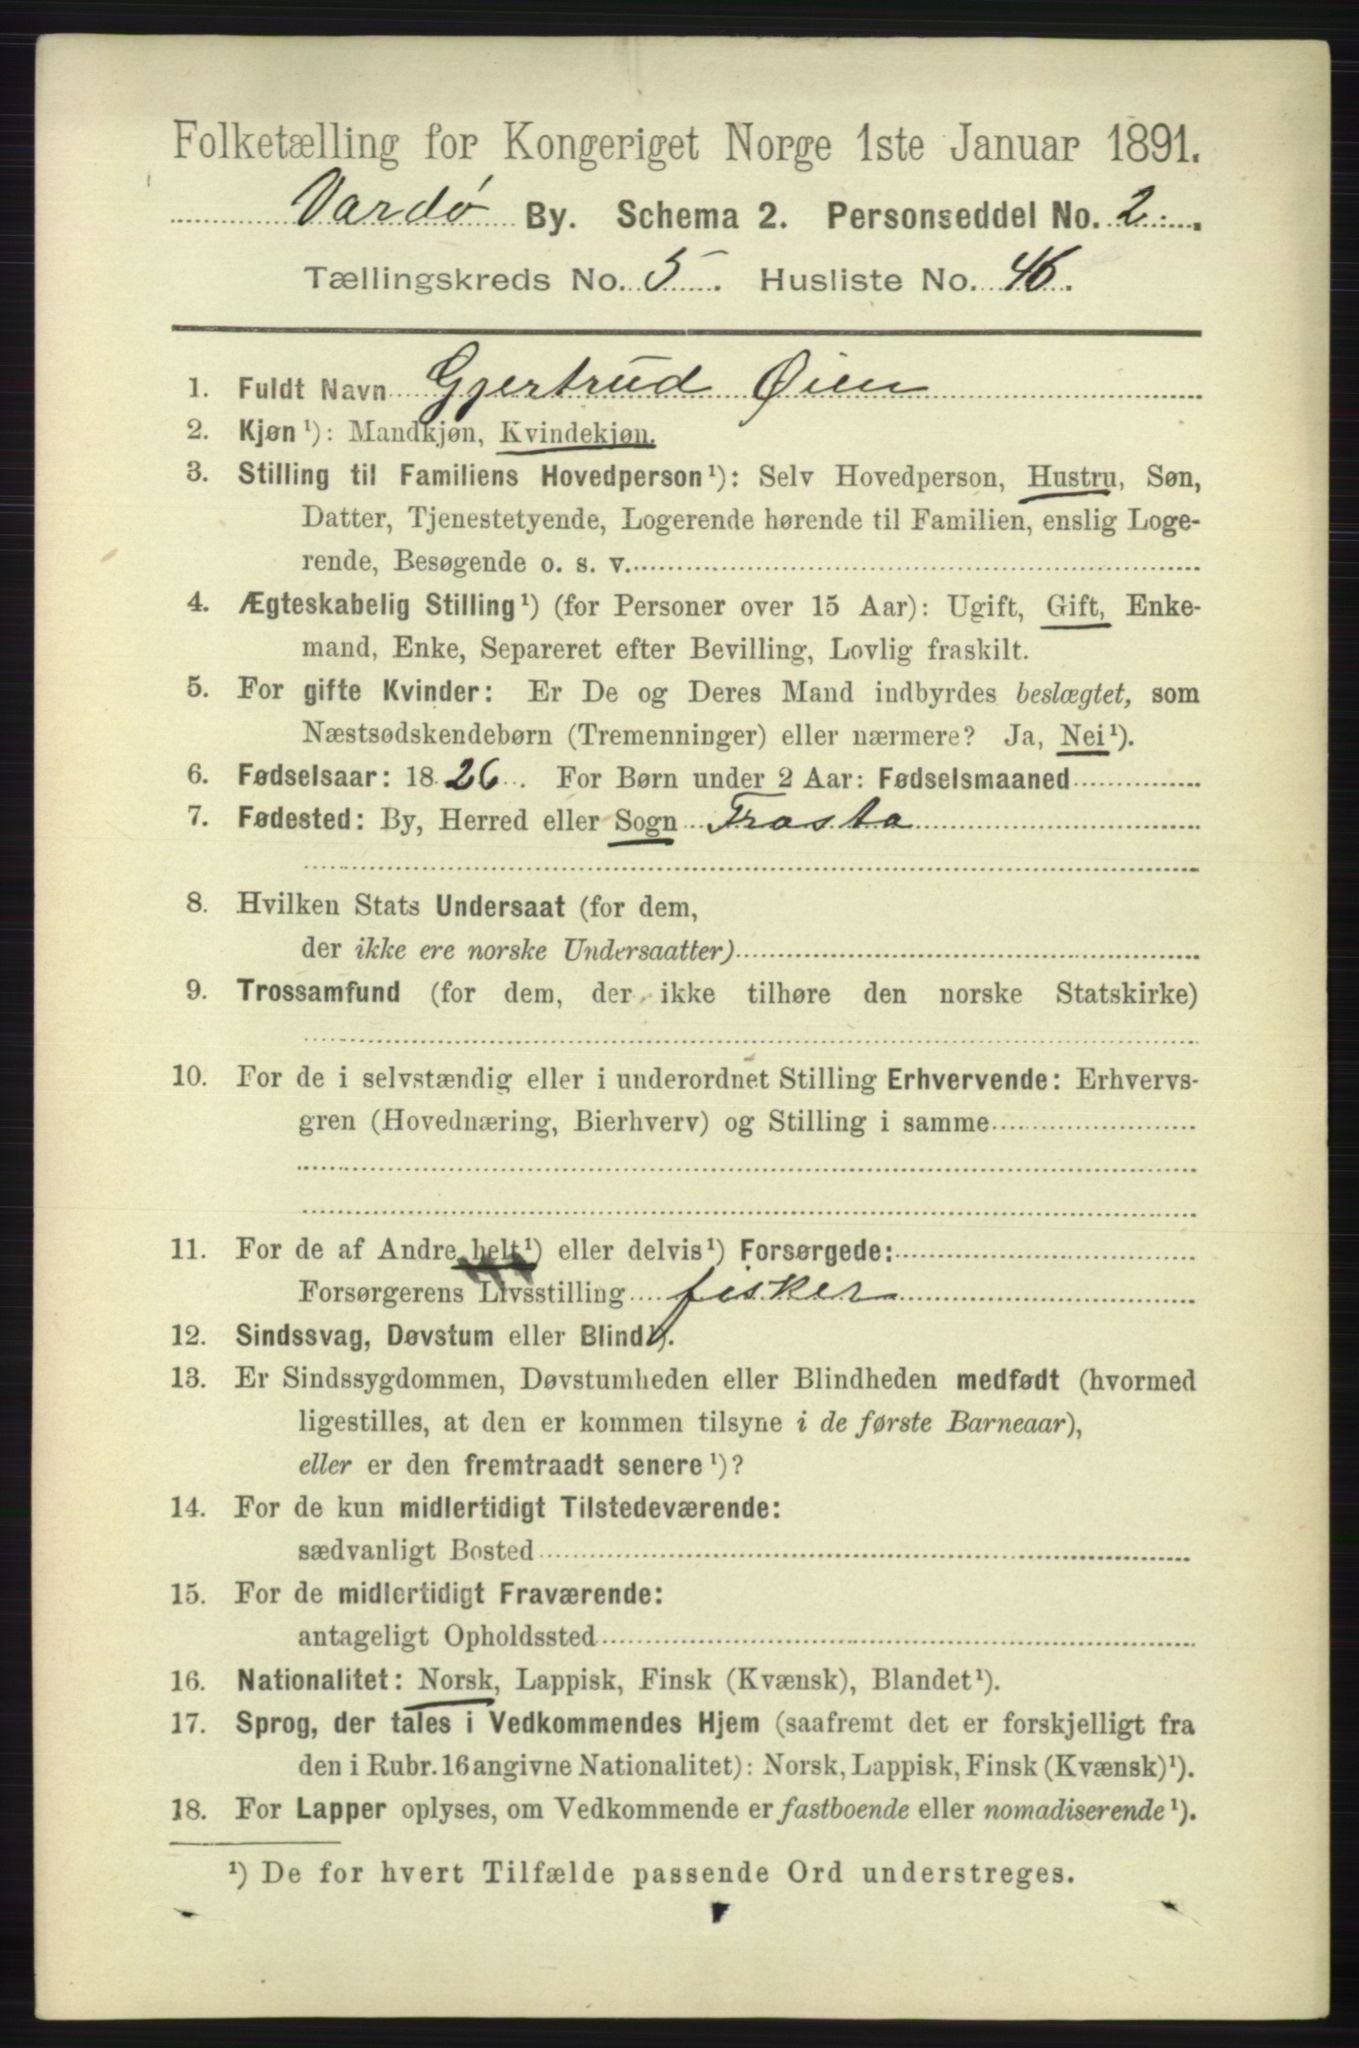 Folketælling for Kongeriget Norge 1ste Januar 1891.
Vardø By. Schema 2. Personseddel No. 2.
Tællingskreds No. 5. Husliste No. 46.
1. Fuldt Navn Gjertrud Øien
2. Kjøn¹): Mandkjøn, Kvindekjøn.
3. Stilling til Familiens Hovedperson¹): Selv Hovedperson, Hustru, Søn,
Datter, Tjenestetyende, Logerende hørende til Familien, enslig Loge-
rende, Besøgende o. s. v.
4. Ægteskabelig Stilling¹) (for Personer over 15 Aar): Ugift, Gift, Enke-
mand, Enke, Separeret efter Bevilling, Lovlig fraskilt.
5. For gifte Kvinder: Er De og Deres Mand indbyrdes beslægtet, som
Næstsødskendebørn (Tremenninger) eller nærmere? Ja, Nei¹).
6. Fødselsaar: 1826. For Børn under 2 Aar: Fødselsmaaned
7. Fødested: By, Herred eller Sogn Trosta
8. Hvilken Stats Undersaat (for dem,
der ikke ere norske Undersaatter)
9. Trossamfund (for dem, der ikke tilhøre den norske Statskirke)
10. For de i selvstændig eller i underordnet Stilling Erhvervende: Erhvervs-
gren (Hovednæring, Bierhverv) og Stilling i samme
11. For de af Andre helt¹) eller delvis¹) Forsørgede:
Forsørgerens Livsstilling fisker
12. Sindssvag, Døvstum eller Blind¹).
13. Er Sindssygdommen, Døvstumheden eller Blindheden medfødt (hvormed
ligestilles, at den er kommen tilsyne i de første Barneaar),
eller er den fremtraadt senere¹)?
14. For de kun midlertidigt Tilstedeværende:
sædvanligt Bosted
15. For de midlertidigt Fraværende:
antageligt Opholdssted
16. Nationalitet: Norsk, Lappisk, Finsk (Kvænsk), Blandet¹).
17. Sprog, der tales i Vedkommendes Hjem (saafremt det er forskjelligt fra
den i Rubr. 16 angivne Nationalitet): Norsk, Lappisk, Finsk (Kvænsk)¹).
18. For Lapper oplyses, om Vedkommende er fastboende eller nomadiserende¹).
¹) De for hvert Tilfælde passende Ord understreges.